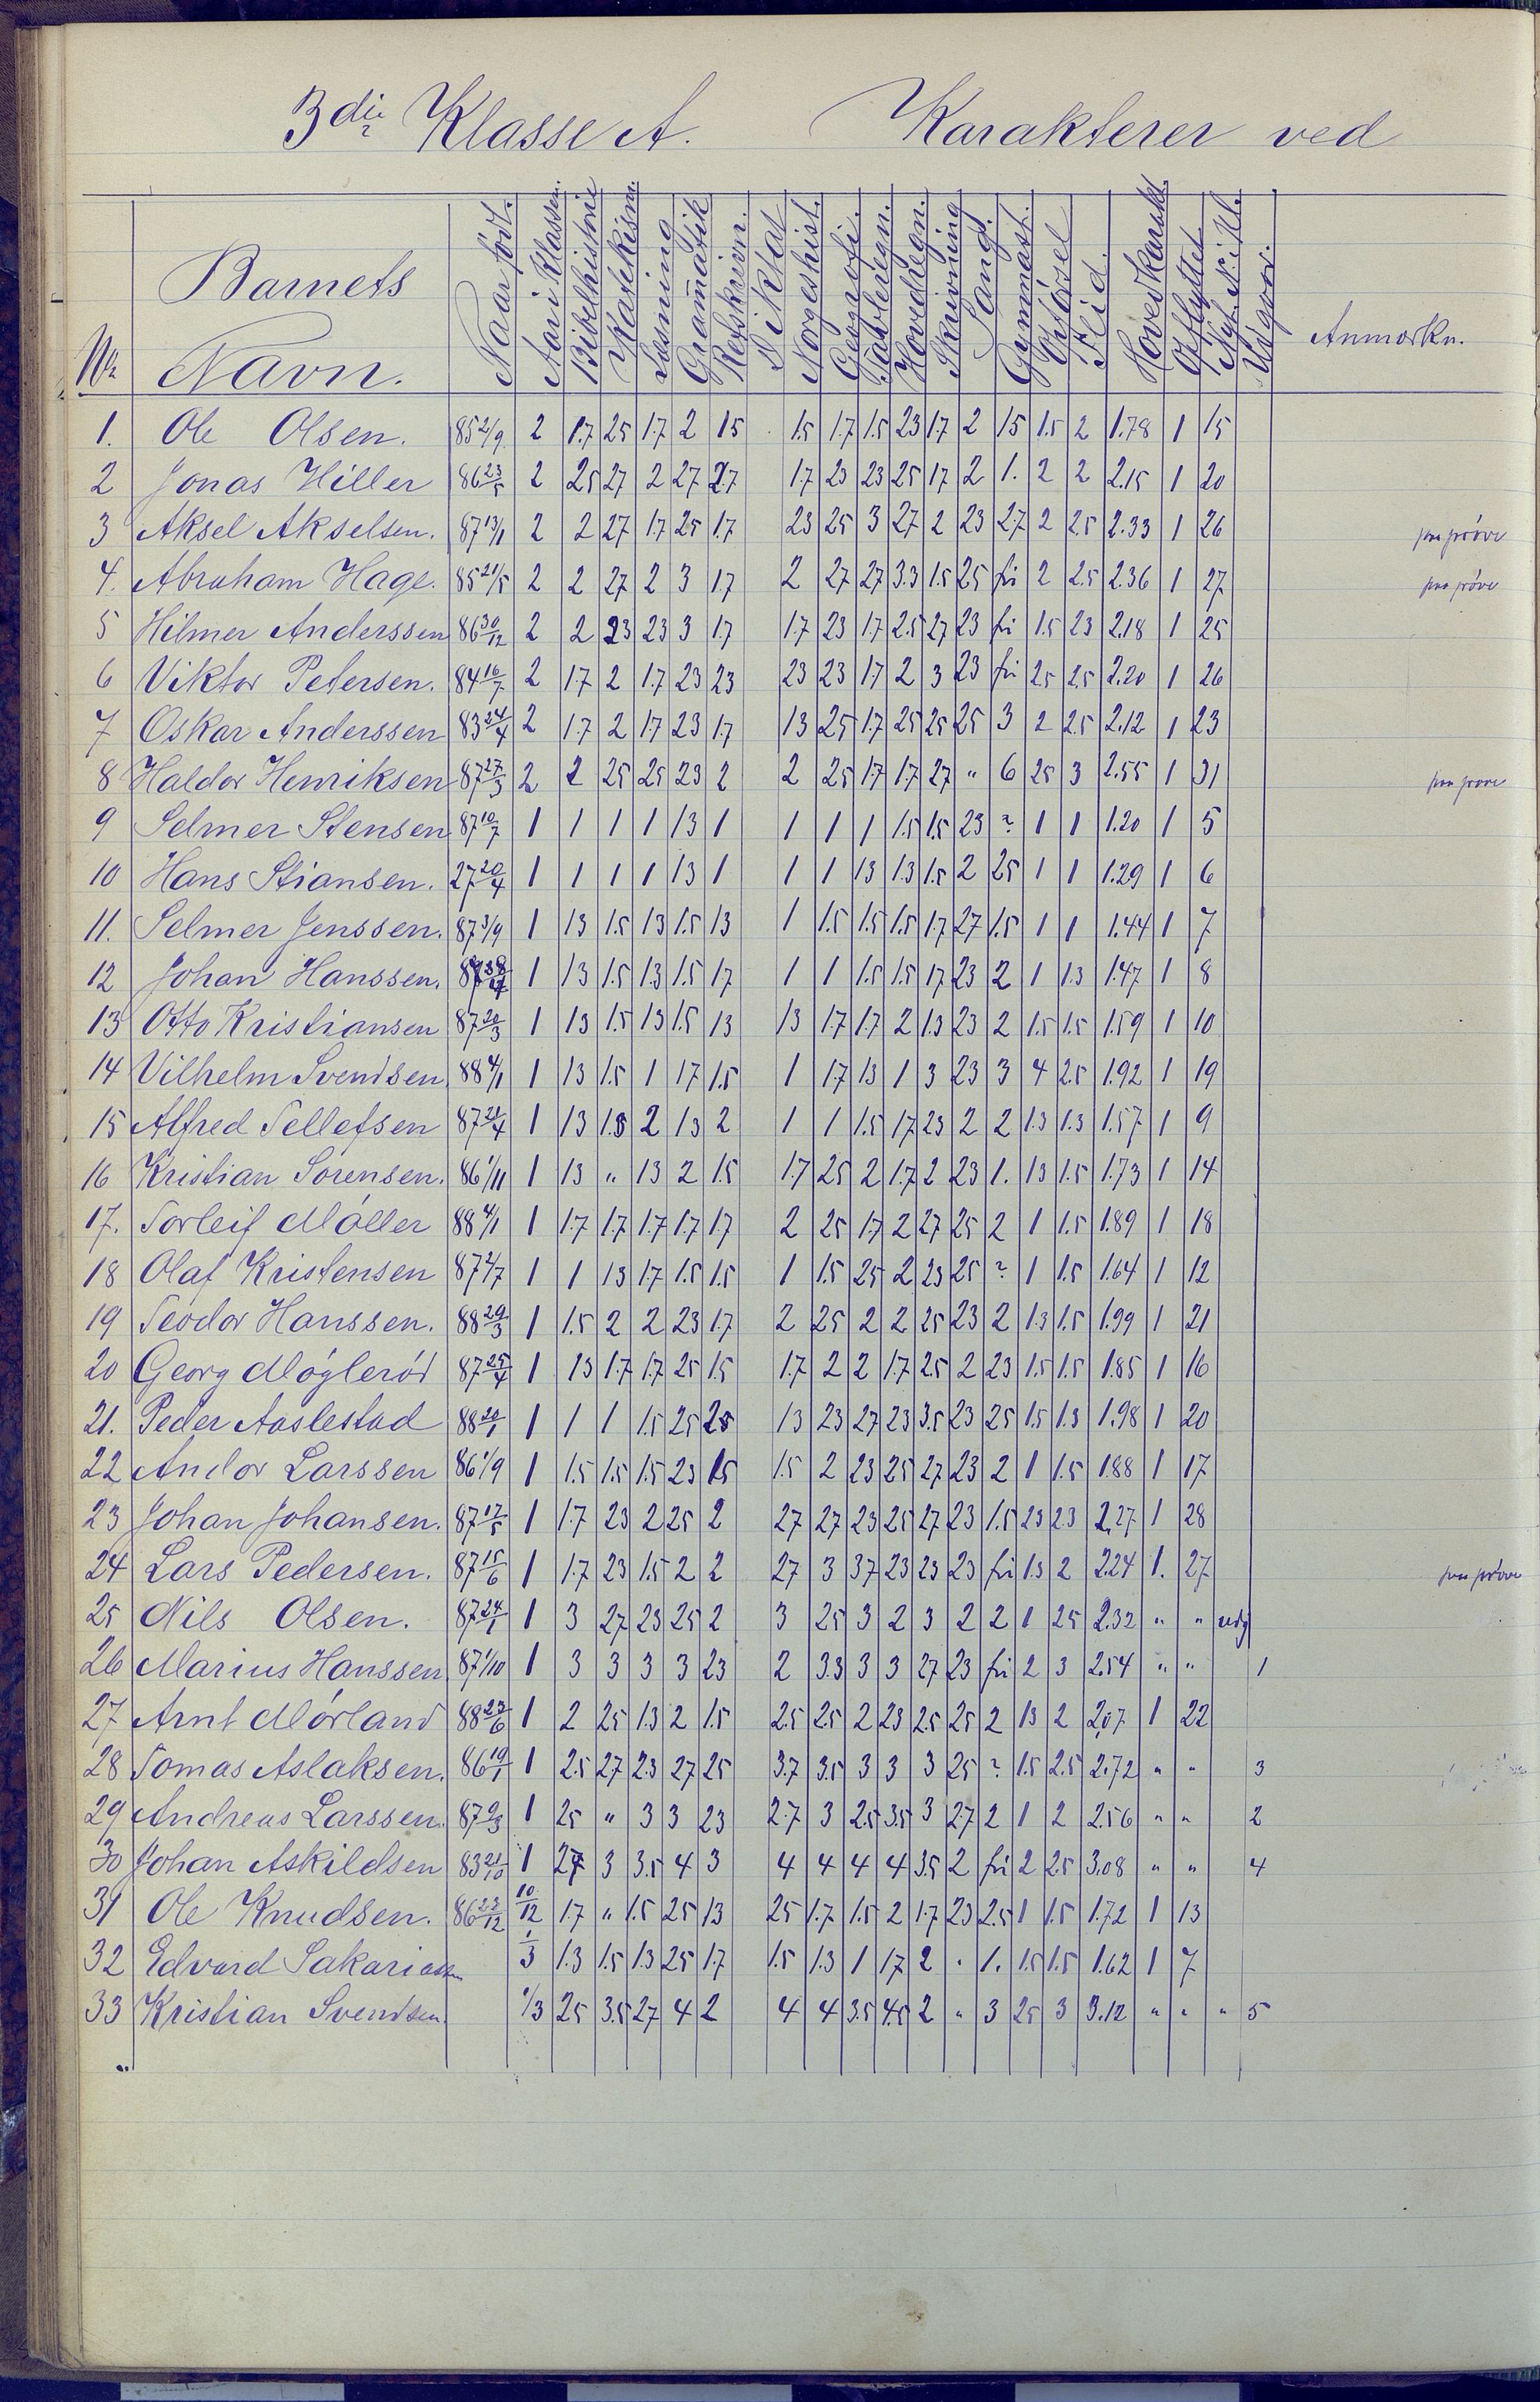 3die Klasse A. Karakterer ved
No Barnets Navn. Naar født. Aar i Klassen. Bibelhistorie Katekism. Læsning Grammatik Retskrivn. Diktat Norgeshist. Geografi. Tavleregn. Hovedregn. Skrivning Sang. Gymnast. Opførsel Flid. Hovedkarakt. Opflyttet Nyt N. i Kl. Udgaar. Anmærkn.
1. Ole Olsen. 85 2/9 2 1.7 25 1.7 2 15 1.5 1.7 1.5 23 1.7 2 15 1.5 2 1.78 1 15
2 Jonas Hiller 86 23/5 2 25 27 2 27 27 1.7 23 23 25 17 2 1. 2 2 2.15 1 20
3 Aksel Akselsen. 87 13/1 2 2 27 1.7 25 1.7 23 25 3 27 2 23 27 2 2.5 2.33 1 26 paa prøve
4. Abraham Hage. 85 21/5 2 2 27 2 3 1.7 2 27 27 3.3 1.5 25 fri 2 2.5 2.36 1 27 paa prøve
5 Hilmer Anderssen 86 30/12 2 2 23 23 3 1.7 1.7 23 1.7 2.5 27 23 fri 1.5 23 2.18 1 25
6 Viktor Petersen. 84 16/7 2 1.7 2 1.7 23 23 23 23 1.7 2 3 23 fri 25 25 2.20 1 26
7 Oskar Anderssen 83 24/4 2 1.7 2 1.7 23 1.7 13 25 1.7 25 25 25 3 2 2.5 2.12 1 23
8 Haldor Henriksen 87 27/3 2 2 25 25 23 2 2 25 1.7 1.7 27 " 6 25 3 2.55 1 31 paa prøve
9 Selmer Stensen 87 10/7 1 1 1 1 13 1 1 1 1 1.5 1.5 23 ? 1 1 1.20 1 5
10 Hans Stiansen. 27 20/4 1 1 1 1 13 1 1 1 13 1.3 1.5 2 25 1 1 1.29 1 6
11. Selmer Jenssen. 87 3/9 1 13 1.5 13 1.5 13 1 1.5 1.5 1.5 1.7 27 1.5 1 1 1.44 1 7
12 Johan Hanssen. 1 13 1.5 1.3 1.5 17 1 1 1.5 1.5 17 23 2 1 1.3 1.47 1 8
13 Otto Kristiansen 87 20/3 1 13 1.5 13 1.5 13 13 1.7 1.7 2 1.3 23 2 1.5 1.5 1.59 1 10
14 Vilhelm Svendsen 88 4/1 1 13 1.5 1 17 1.5 1 1.7 13 1 3 23 3 4 2.5 1.92 1 19
15 Alfred Tellefsen 87 21/4 1 13 1.5 2 13 2 1 1 1.5 17 23 2 2 1.3 1.3 1.57 1 9
16 Kristian Sørensen. 86 1/11 1 13 " 13 2 1.5 1.7 25 2 1.7 2 23 1. 13 1.5 1.73 1 14
17. Torleif Møller 88 4/1 1 1.7 1.7 1.7 1.7 1.7 2 25 1.7 2 27 25 2 1 1.5 1.89 1 18
18 Olaf Kristensen 87 2/7 1 1 13 1.7 1.5 1.5 1 1.5 25 2 23 25 ? 1 1.5 1.64 1 12
19 Teodor Hanssen. 88 29/3 1 1.5 2 2 23 1.7 2 25 2 2 25 23 2 1.3 1.5 1.99 1 21
20 Georg Møglerød 87 25/4 1 13 1.7 1.7 25 1.5 1.7 2 2 1.7 2.5 2 23 1.5 1.5 1.85 1 16
21. Peder Aaslestad 88 20/1 1 1 1 1.5 25 25 13 23 27 23 3.5 23 25 1.5 1.3 1.98 1 20
22 Andor Larssen 86 1/9 1 1.5 1.5 1.5 23 15 1.5 2 23 25 27 23 2 1 1.5 1.88 1 17
23 Johan Johansen. 87 17/5 1 1.7 23 2 25 2 27 27 23 25 27 23 1.5 23 23 2.27 1 28
24 Lars Pedersen. 87 15/6 1 1.7 23 1.5 2 2 27 3 37 23 23 23 fri 1.3 2 2.24 1. 27 paa prøve
25 Nils Olsen. 87 24/1 1 3 27 23 25 2 3 25 3 2 3 2 2 1 25 2.32 " " udg
26 Marius Hanssen 87 1/10 1 3 3 3 3 23 2 3.3 3 3 27 23 fri 2 3 2.54 " " 1
27 Arnt Mørland 88 23/6 1 2 25 1.3 2 1.5 2.5 2.5 2 23 2.5 25 2 13 2 2.07 1 22
28 Tomas Aslaksen. 86 19/1 1 2.5 27 2.3 27 25 3.7 3.5 3 3 3 25 ? 1.5 2.5 2.72 " " 3
29 Andreas Larssen. 87 9/3 1 25 " 3 3 23 2.7 3 2.5 3.5 3 27 2 1 2 2.56 " " 2
30 Johan Askildsen 83 21/10 1 27 3 3.5 4 3 4 4 4 4 3.5 2 fri 2 2.5 3.08 " " 4
31 Ole Knudsen. 86 23/12 10/12 1.7 " 1.5 25 13 25 1.7 1.5 2 1.7 23 2.5 1 1.5 1.72 1 13
32 Edvard Sakariassen 1/3 1.3 1.5 1.3 25 1.7 1.5 1.3 1 17 2 . 1. 1.5 1.5 1.62 1 7
33 Kristian Svendsen. 1/3 25 3.5 27 4 2 4 4 3.5 4.5 2 " 3 25 3 3.12 " " " 5
"